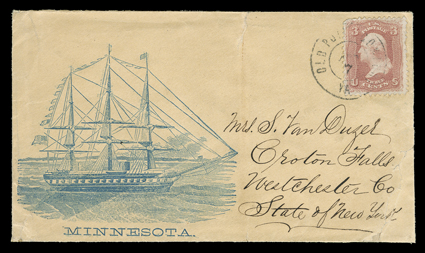 OLD PO
17
VA
3 3
U S
CENTS
Mrs. S. Van Duzer
Croton Falls
Westchester Co
State of New York.
MINNESOTA.